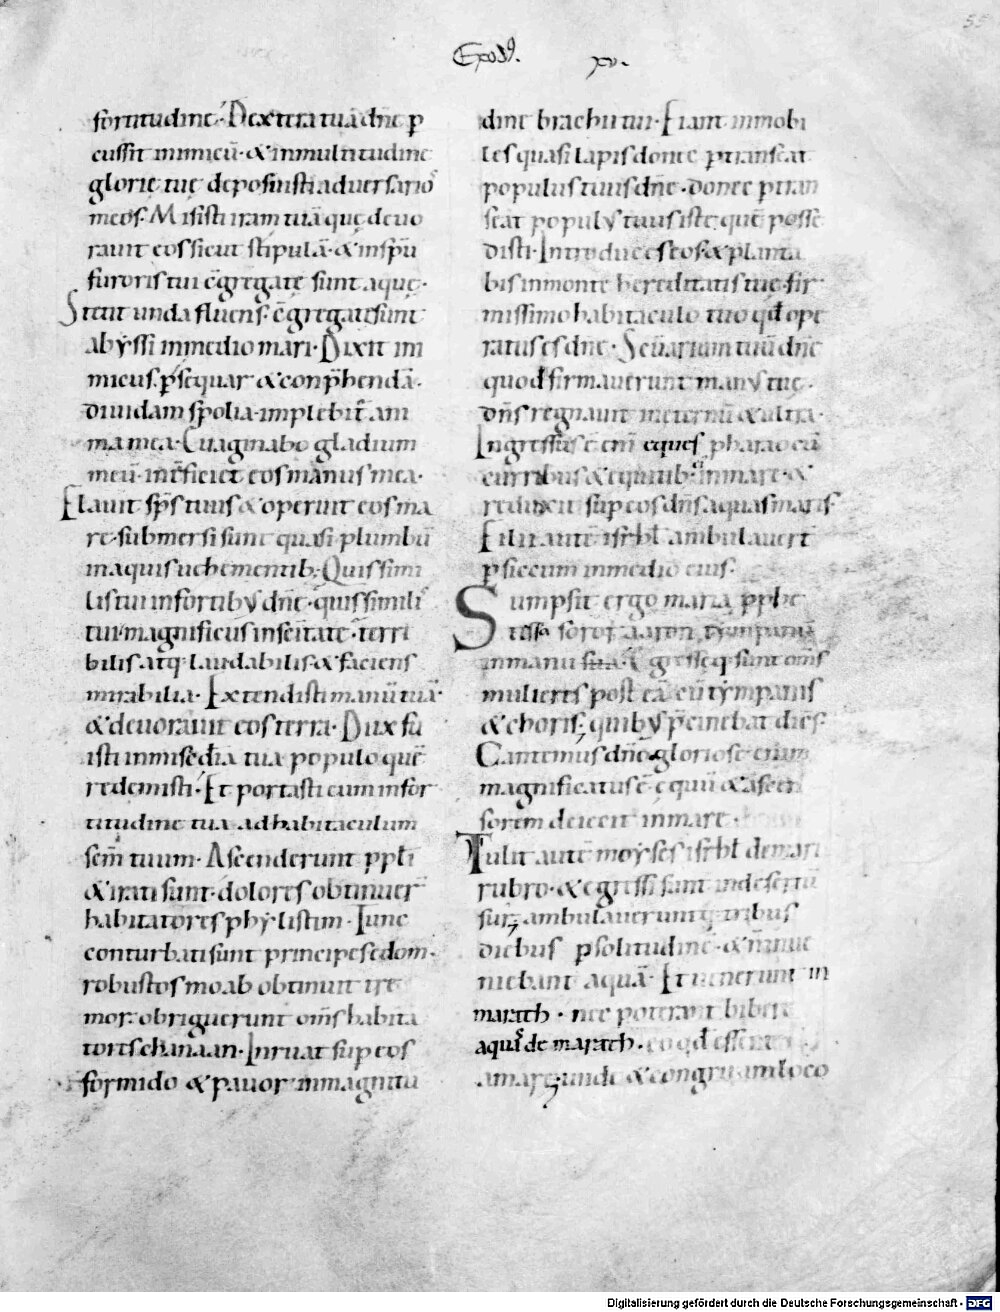 55
Exod⁹. xv.
fortitudine. Dextera tua dñe p
cussit inimicũ. & inmultitudine
glorię tuę deposuisti adversario⁹
meos. Misisti iram tuã quę devo
ravit eos sicut stipulã. & inspũ
furoris tui cĝregatę sunt aquę.
Stetit unda fluens. cĝregatę sunt
abyssi inmedio mari. Dixit in
imicus. psequar & conphendã.
dividam spolia. implebit̃ ani
ma mea. Evaginabo gladium
meũ. int̃ficiet eos manus mea.
Flavit sps̃ tuus & operuit eos ma
re. submersi sunt quasi plumbũ
inaquis uehementib; Quis simi
lis tui infortibus dñe. quis simili⁹
tui. magnificus insc̃itate. terri
bilis. atq; laudabilis. & faciens
mirabilia. Extendisti manũ tuã.
& devoravit eos terra. Dux fu
isti inmisedia tua populo quẽ
redemisti. Et portasti eum infor
titudine tua. ad habitaculum
sc̃m tuum. Ascenderunt ppli
& irati sunt. dolores obtinuer̃
habitatores phylistim. Tunc
conturbati sunt principes edom.
robustos moab obtinuit tre
mor. obriguerunt oms̃ habita
tores chanaan. Inruat sup eos
formido & pavor inmagnitu
dine brachii tui. Fiant inmobi
les quasi lapis donec ptranseat
populus tuus dñe. donec ptran
seat populus tuus iste. quẽ posse
disti. Introduces eos & planta
bis inmonte hereditatis tuę. fir
missimo habitaculo tuo qd̃ ope
ratus es dñe. Sc̃uarium tuũ dñe
quod firmaverunt manus tuę.
dñs regnavit inęternũ & ultra.
Ingressus ẽ eni eques pharao cũ
curribus & equitib; inmare. &
reduxit sup eos dñs aquas maris.
Filii autẽ isrhl ambulaver̃t
p siccum inmedio eius.
Sumpsit ergo maria pphe
tissa soror aaron tympanũ
inmanu sua. Egressęq; sunt oms̃
mulieres post eã. cũ tympanis
& choris. quibus p̃cinebat dies.
Cantemus dño. gloriose enim
magnificatus ẽ. equũ & ascen
sorem deiecit inmare.
Tulit autẽ moyses isrhl demari
rubro. & egressi sunt indesertũ
sur. ambulaverunt q; tribus
diebus p solitudinẽ. & ñ inve
niebant aquã. Et venerunt in
marath. nec poterant bibere
aquas de marath. eo qd̃ essent
amarę. unde & congruum loco
Digitalisierung gefördert durch die Deutsche Forschungsgemeinschaft - DFG